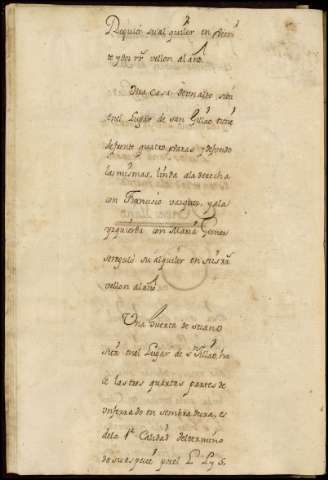 Regulò su al quiler en
to y dos rr.s vellon al año.
Otra Casa de un alto sita
en el Lugar de san Gillao tiene
de frente quatro varas y de fondo
las mismas, linda ala derecha
con Francisco vazquez, y ala
yzquierda con Maria Gomes
se regulò su alquiler en seis rr.s
vellon al año.
Una huerta de secano
sita en el Lugar de Sn Gillao, ha
ze las tres quartas partes de
un ferrado en sembradura, es
de la 1a Calidad del termino